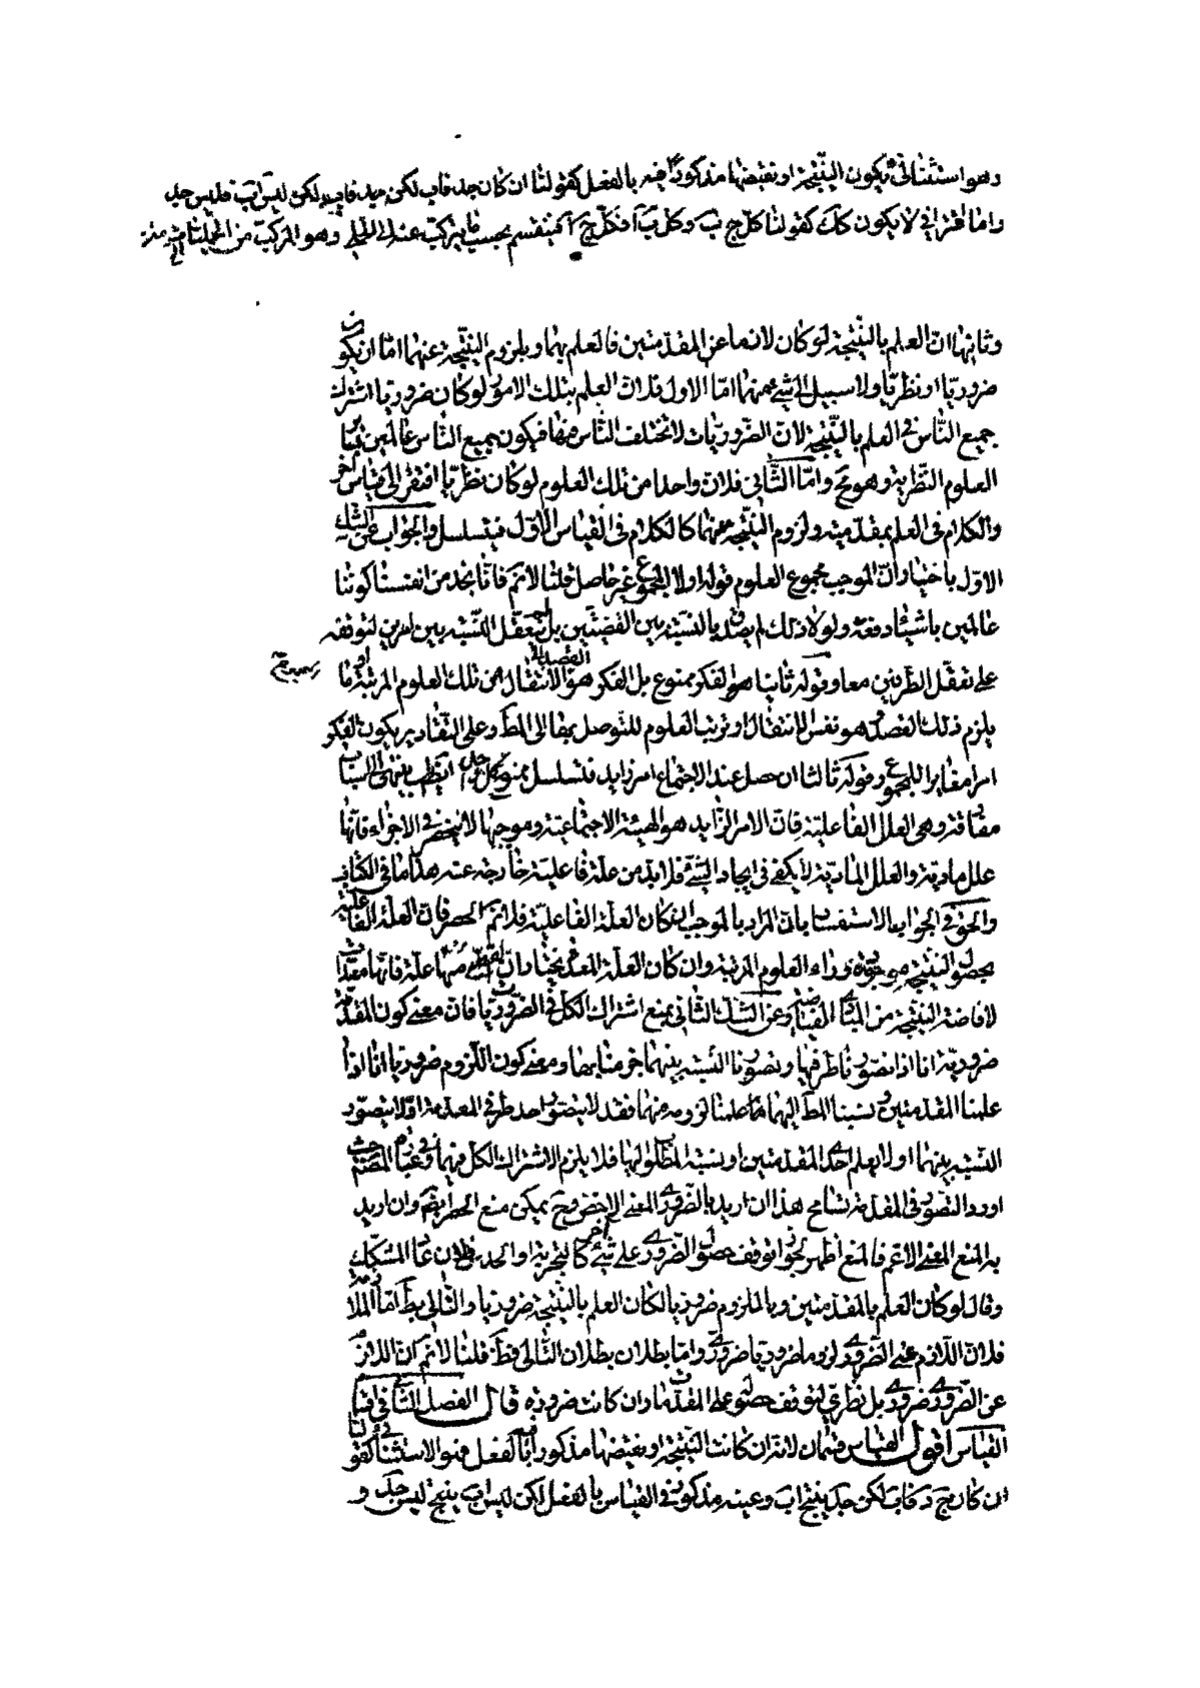 وهو استثنائى يكون النتيجة او نقيضها مذكورا فيه بالفعل كقولنا ان كان جد فاب لكن جد فاب لكن ليس اب فليس جد
واما اقترانى لا يكون كك كقولنا كل ج ب وكل ب آ فكل ج آ فينقسم بحسب ما يتركب عنه الى الحملى وهو المركب من الحمليات
وثانيها ان العلم بالنتيجة لو كان لازما عن المقدمتين فالعلم بهما وبلزوم النتيجة عنهما اما ان يكون
ضروريا او نظريا ولا سبيل الى شئ منهما اما الاول فلان العلم بتلك الامور لو كان ضروريا اشترك
جميع الناس فى العلم بالنتيجة لان الضروريات لا تختلف الناس فيها فيكون جميع الناس عالمين
العلوم النظرية وهو مح واما الثانى فلان واحدا من تلك العلوم لو كان نظريا افتقر الى قياس آخر
والكلام فى العلم بمقدمتيه ولزوم النتيجة عنهما كالكلام فى القياس الاول فيتسلسل والجواب عن الشك
الاول باختيار ان الموجب مجموع العلوم قوله اولا المجموع غير حاصل قلنا لانم فانا نجد من انفسنا كوننا
عالمين باشياء دفعة ولولا ذلك لم يصدق بالنسبة بين القضيتين بل لم تعقل النسبة بين امرين لتوقفه
على تعقل الطرفين معا وقوله ثانيا هو الفكر ممنوع بل الفكر هو الانتقال من تلك العلوم المرتبة
يلزم ذلك القصد هو نفس الانتقال او ترتيب العلوم للتوصل بها الى المط وعلى التقادير يكون الفكر
امرا مغايرا للمجموع وقوله ثالثا ان حصل عند الاجتماع امر زايد فتسلسل ممنوع
هى العلل الفاعلية فان الامر الزايد هو الهيئة الاجتماعية وموجبها لا ينحصر فى الاجزاء فانها
علل مادية والعلل المادية لا يكفى فى ايجاد الشئ فلا بد من علة فاعلية خارجة عنه هذا ما فى الكتاب
والحق فى الجواب الاستفسار بان المراد بالموجب ان كان العلة الفاعلية فلا نم الحصر فان العلة الفاعلية
بحصول النتيجة موجودة وراء العلوم المرتبة وان كان العلة المعدة نختار ان منها علة فانها معدات
لافاضة النتيجة من المبدأ الفياض وعن الشك الثانى بمنع اشتراك الكل فى الضروريات فان معنى كون المقدمة
ضرورية انا اذا تصورنا طرفيها وتصورنا النسبة بينهما جزمنا بها ومعنى كون اللزوم ضروريا انا اذا
علمنا المقدمتين ونسبنا المط اليهما علمنا لزومه منهما فقد لا يتصور احد طرفى المقدمة او لا يتصور
النسبة بينهما او لا يعلم احدى المقدمتين او نسبة المطلوب اليها فلا يلزم الاشتراك الكل فيهما وفى عبارة المصنف حيث
اورد التصور فى المقدمة تسامح هذا ان اريد بالضرورى المعنى الاخص وح يمكن منع الحصر ايضا وان اريد
به المعنى الاعم فالمنع اظهر لجواز توقف حصول الضرورى على شئ آخر كالتجربة او الحدس
وقال لو كان العلم بالمقدمتين وبالملزوم ضروريا لكان العلم بالنتيجة ضروريا والتالى بط اما الملازمة
فلان اللازم عن الضرورى لزوما ضروريا ضرورى واما بطلان التالى فظ قلنا لا نم ان اللازم
عن الضرورى ضرورى بل نظرى لتوقف حصوله على المقدمات وان كانت ضرورية قال الفصل الثانى فى اقسام
القياس اقول القياس قسمان لانه ان كانت النتيجة او نقيضها مذكورا فيه بالفعل فهو الاستثنائى كقولنا
ان كان ج د فاب لكن جد ينتج اب وعينه مذكور فى القياس بالفعل لكن ليس اب ينتج ليس جد و